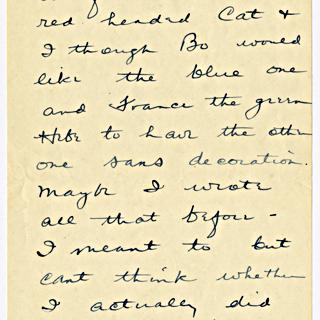 red headed Cat &
I though Bo would
like the blue one
and France the green
to have the other
one sans decoration.
Maybe I wrote
all that before -
I meant to but
cant think whether
I actually did